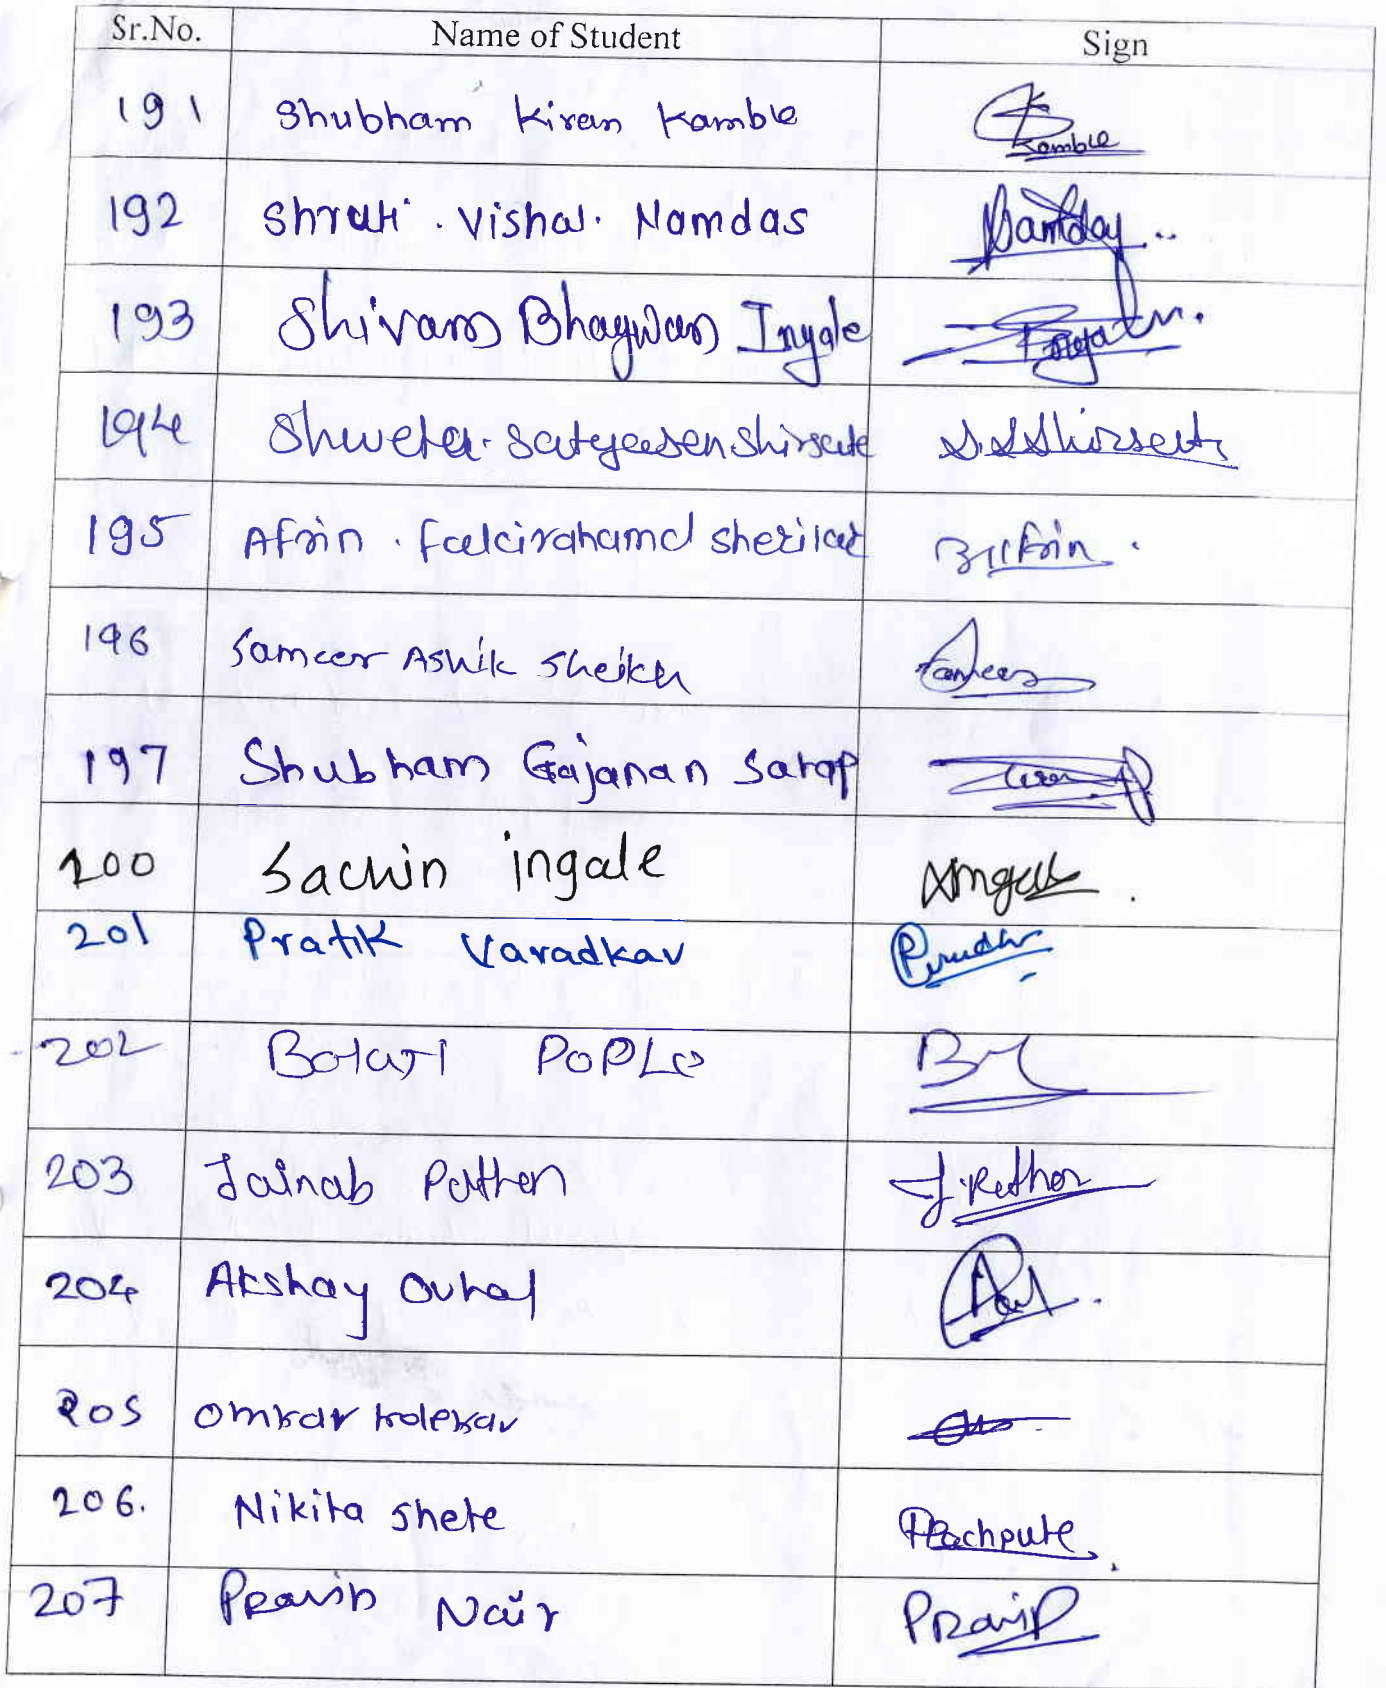 Sr.No. Name of Student Sign
191 Shubham Kiran Kamble Kamble
192 Shruti . Vishal. Namdas
193 Shivam Bhagwan Ingale
194 Shweta. Satyasen Shirsate S.S Shirsate
195 Afrin .
196 Sameer Ashik Sheikh Sameer
197 Shubham Gajanan Sarap
200 Sachin ingale
201 Pratik Varadkar
202 Balaji POPLE
203 Jainab Pathan
204 Akshay Ovhal
205 Omkar Kolekar
206. Nikita Shete
207 Pravin Nair